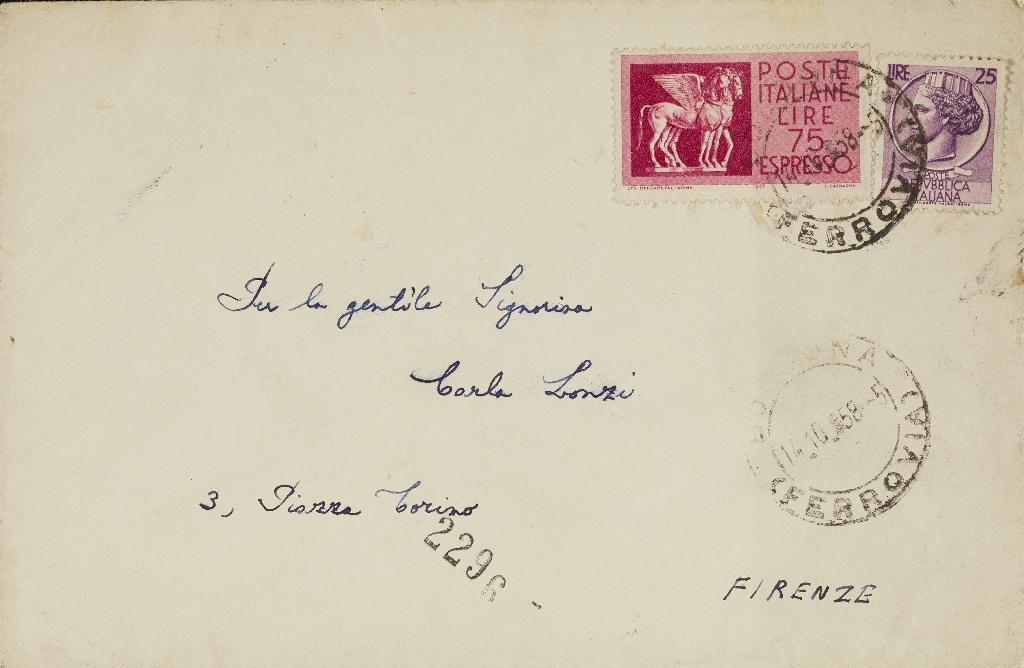 POSTE
ITALIANE
LIRE
75
ESPRESSO
LIRE 25
POSTE
REPVBBLICA
ITALIANA
(FERROVIA)
Per la gentile Signorina
Carla Lonzi
14.10.58-5
(FERROVIA)
3, Piazza Torino
2296
FIRENZE